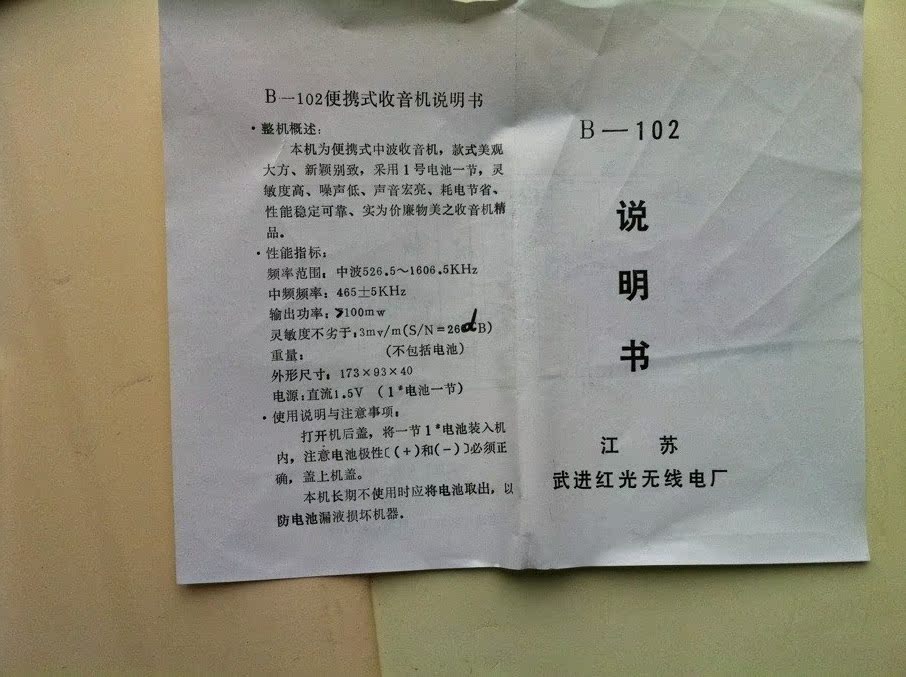 B—102便携式收音机说明书
·整机概述:
本机为便携式中波收音机，款式美观
大方、新颖别致，采用1号电池一节，灵
敏度高、噪声低、声音宏亮、耗电节省、
性能稳定可靠、实为价廉物美之收音机精
品。
·性能指标:
频率范围：中波526.5～1606.5KHz
中频频率：465±5KHz
输出功率：>100mw
灵敏度不劣于:3mv/m(S/N=26dB)
重量： (不包括电池)
外形尺寸：173×93×40
电源:直流1.5V (1#电池一节)
·使用说明与注意事项：
打开机后盖，将一节1#电池装入机
内，注意电池极性〔(+)和(-)〕必须正
确，盖上机盖。
本机长期不使用时应将电池取出，以
防电池漏液损坏机器.
B—102
说
明
书
江 苏
武进红光无线电厂